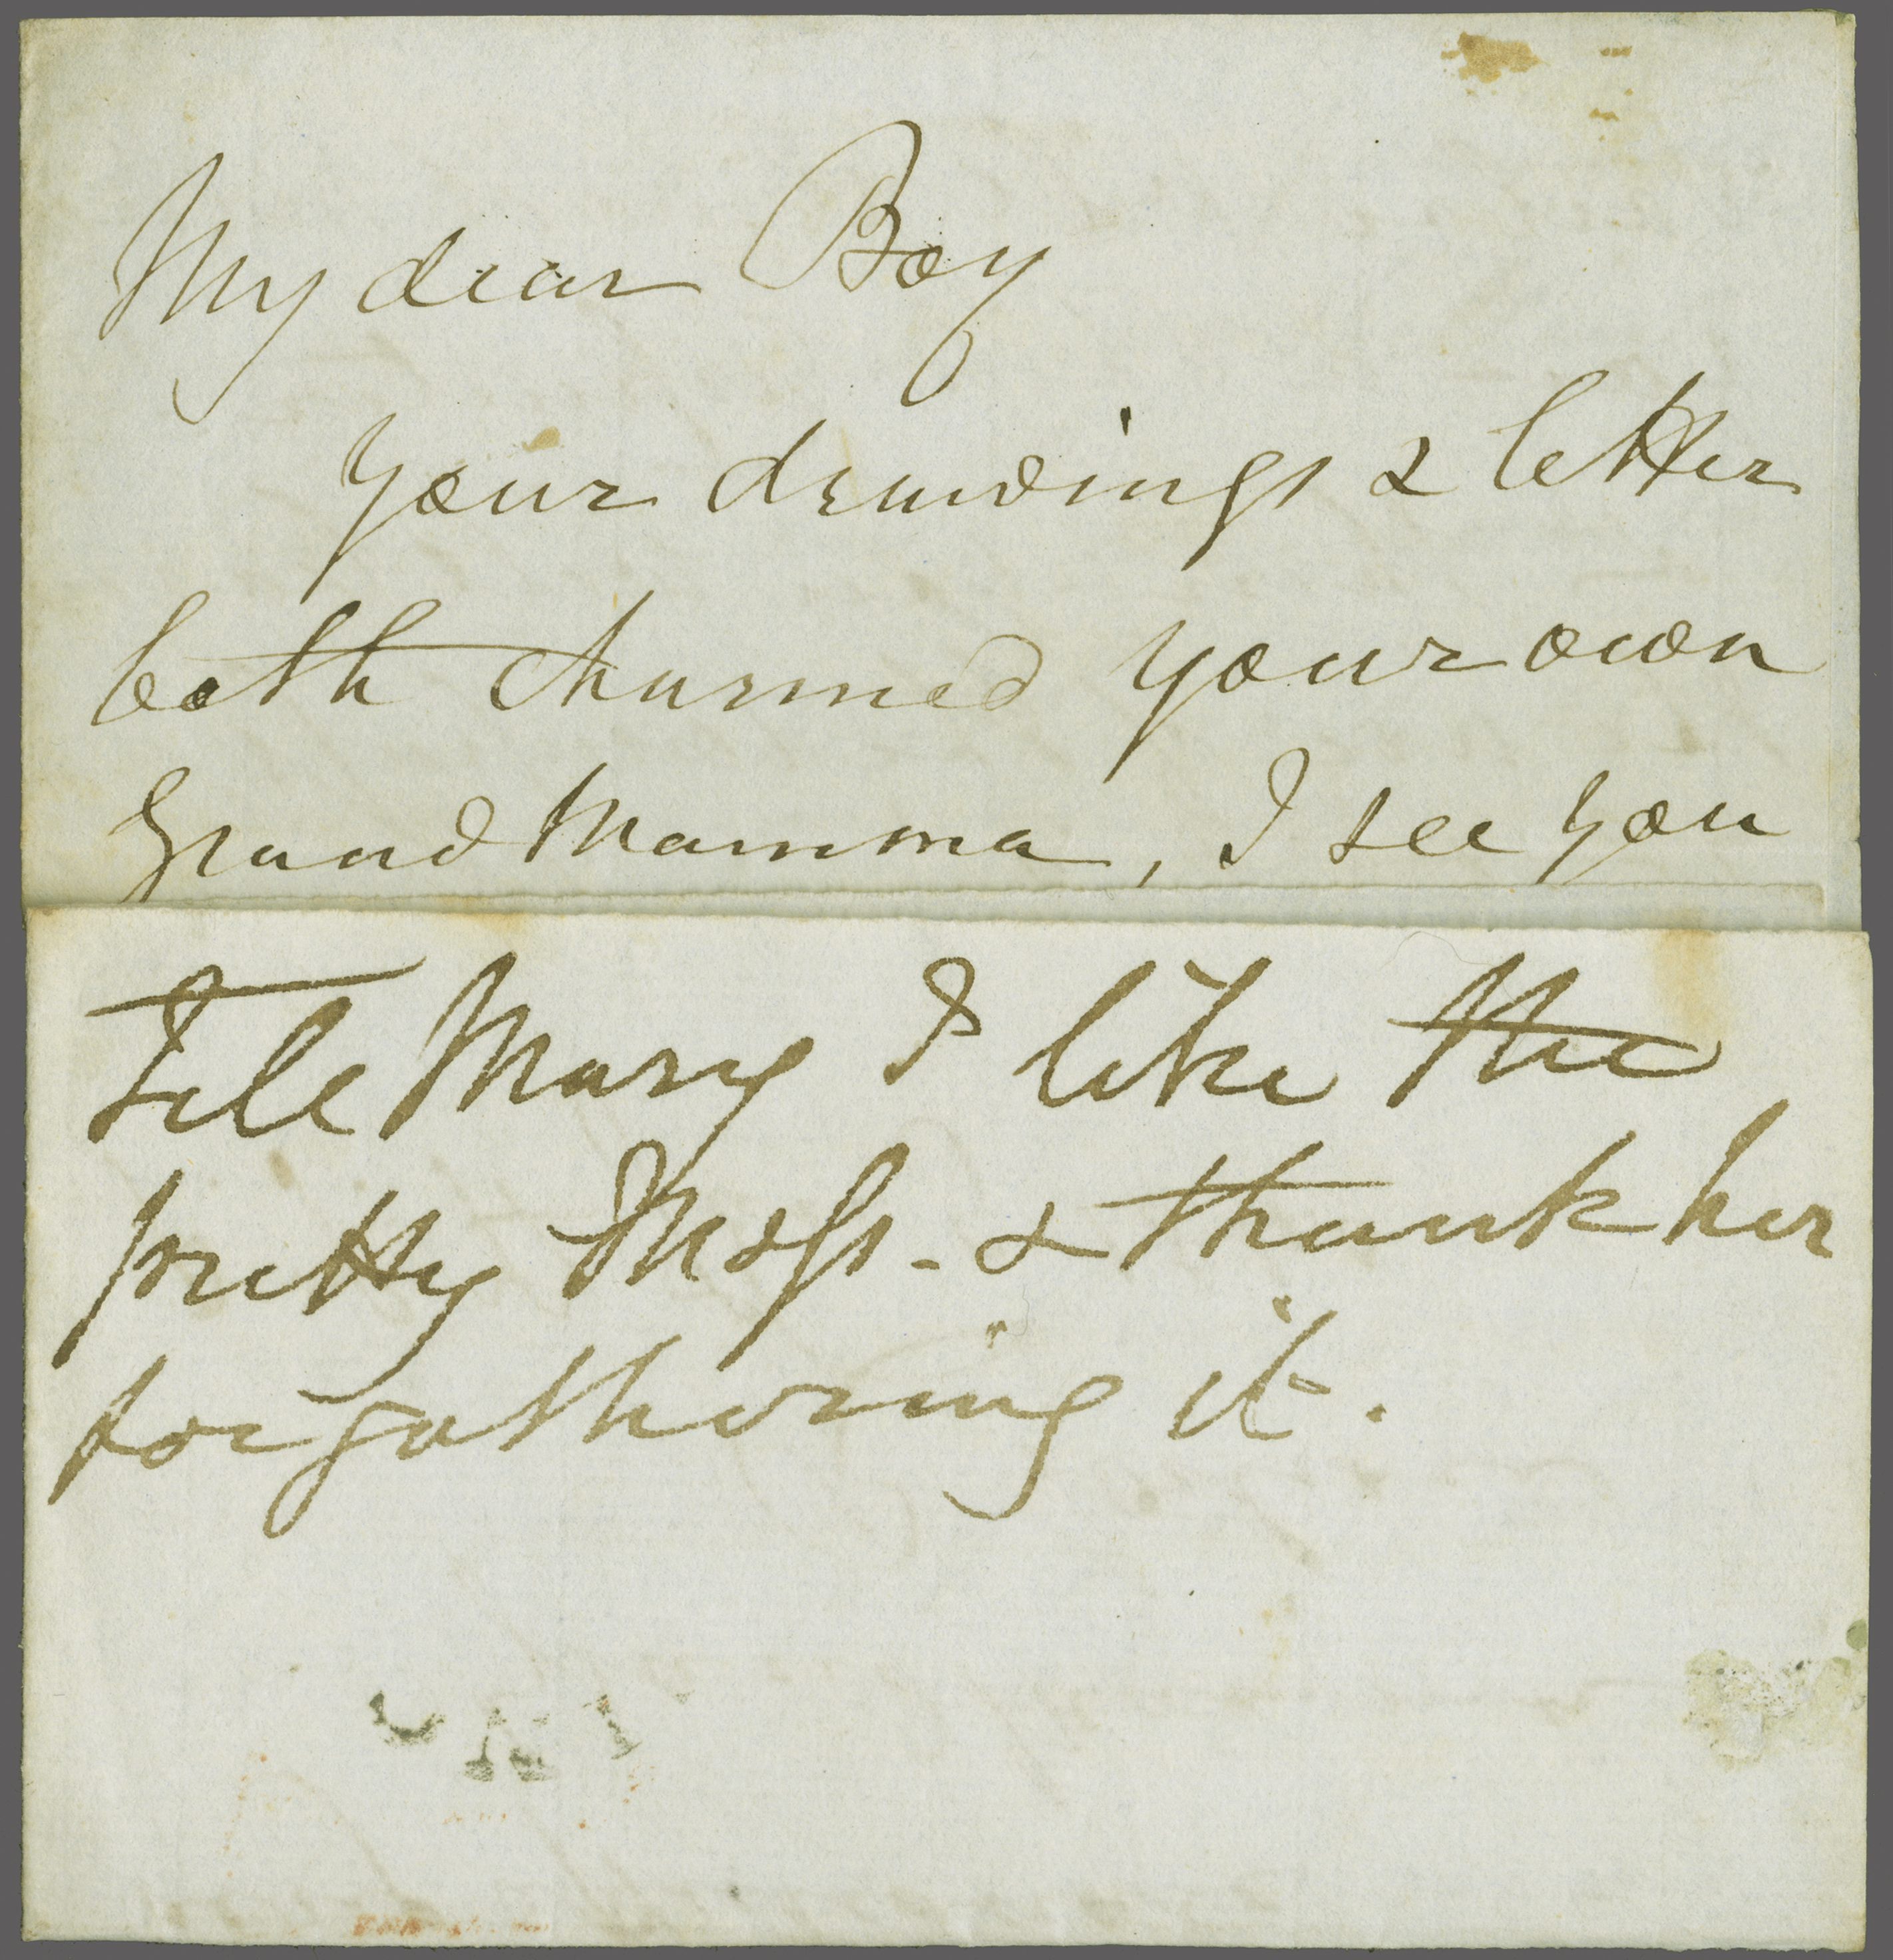 My dear Boy
your drawings & letter
both charmed your own
Grand Mamma, I see you
Tell Mary I like the
pretty Moss - & thank her
for gathering it.